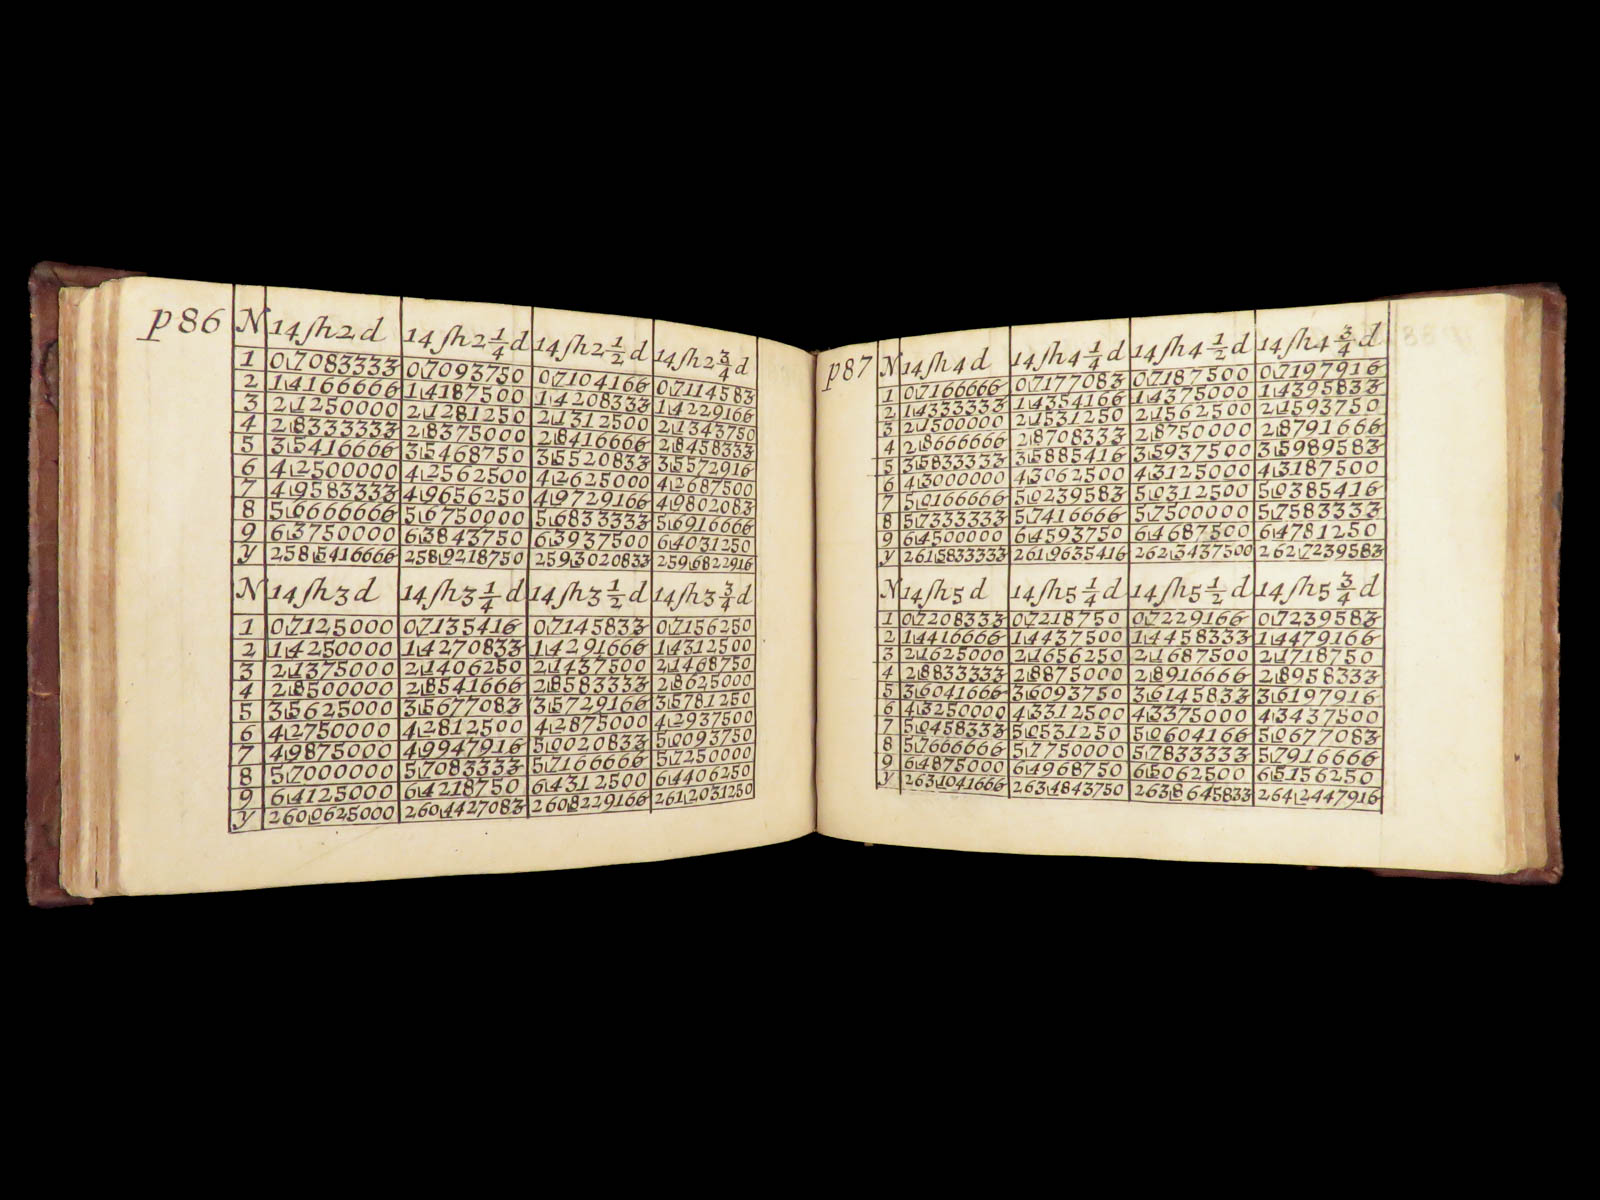 p 86 N 14 ſh 2 d 14 ſh 2 1/4 d 14 ſh 2 1/2 d 14 ſh 2 3/4 d
1 0⌊7083333 0⌊7093750 0⌊7104166 0⌊7114583
2 1⌊4166666 1⌊4187500 1⌊4208333 1⌊4229166
3 2⌊1250000 2⌊1281250 2⌊1312500 2⌊1343750
4 2⌊8333333 2⌊8375000 2⌊8416666 2⌊8458333
5 3⌊5416666 3⌊5468750 3⌊5520833 3⌊5572916
6 4⌊2500000 4⌊2562500 4⌊2625000 4⌊2687500
7 4⌊9583333 4⌊9656250 4⌊9729166 4⌊9802083
8 5⌊6666666 5⌊6750000 5⌊6833333 5⌊6916666
9 6⌊3750000 6⌊3843750 6⌊3937500 6⌊4031250
y 258⌊5416666 258⌊9218750 259⌊3020833 259⌊6822916
N 14 ſh 3 d 14 ſh 3 1/4 d 14 ſh 3 1/2 d 14 ſh 3 3/4 d
1 0⌊7125000 0⌊7135416 0⌊7145833 0⌊7156250
2 1⌊4250000 1⌊4270833 1⌊4291666 1⌊4312500
3 2⌊1375000 2⌊1406250 2⌊1437500 2⌊1468750
4 2⌊8500000 2⌊8541666 2⌊8583333 2⌊8625000
5 3⌊5625000 3⌊5677083 3⌊5729166 3⌊5781250
6 4⌊2750000 4⌊2812500 4⌊2875000 4⌊2937500
7 4⌊9875000 4⌊9947916 5⌊0020833 5⌊0093750
8 5⌊7000000 5⌊7083333 5⌊7166666 5⌊7250000
9 6⌊4125000 6⌊4218750 6⌊4312500 6⌊4406250
y 260⌊0625000 260⌊4427083 260⌊8229166 261⌊2031250
p 87 N 14 ſh 4 d 14 ſh 4 1/4 d 14 ſh 4 1/2 d 14 ſh 4 3/4 d
1 0⌊7166666 0⌊7177083 0⌊7187500 0⌊7197916
2 1⌊4333333 1⌊4354166 1⌊4375000 1⌊4395833
3 2⌊1500000 2⌊1531250 2⌊1562500 2⌊1593750
4 2⌊8666666 2⌊8708333 2⌊8750000 2⌊8791666
5 3⌊5833333 3⌊5885416 3⌊5937500 3⌊5989583
6 4⌊3000000 4⌊3062500 4⌊3125000 4⌊3187500
7 5⌊0166666 5⌊0239583 5⌊0312500 5⌊0385416
8 5⌊7333333 5⌊7416666 5⌊7500000 5⌊7583333
9 6⌊4500000 6⌊4593750 6⌊4687500 6⌊4781250
y 261⌊5833333 261⌊9635416 262⌊3437500 262⌊7239583
N 14 ſh 5 d 14 ſh 5 1/4 d 14 ſh 5 1/2 d 14 ſh 5 3/4 d
1 0⌊7208333 0⌊7218750 0⌊7229166 0⌊7239583
2 1⌊4416666 1⌊4437500 1⌊4458333 1⌊4479166
3 2⌊1625000 2⌊1656250 2⌊1687500 2⌊1718750
4 2⌊8833333 2⌊8875000 2⌊8916666 2⌊8958333
5 3⌊6041666 3⌊6093750 3⌊6145833 3⌊6197916
6 4⌊3250000 4⌊3312500 4⌊3375000 4⌊3437500
7 5⌊0458333 5⌊0531250 5⌊0604166 5⌊0677083
8 5⌊7666666 5⌊7750000 5⌊7833333 5⌊7916666
9 6⌊4875000 6⌊4968750 6⌊5062500 6⌊5156250
y 263⌊1041666 263⌊4843750 263⌊8645833 264⌊2447916